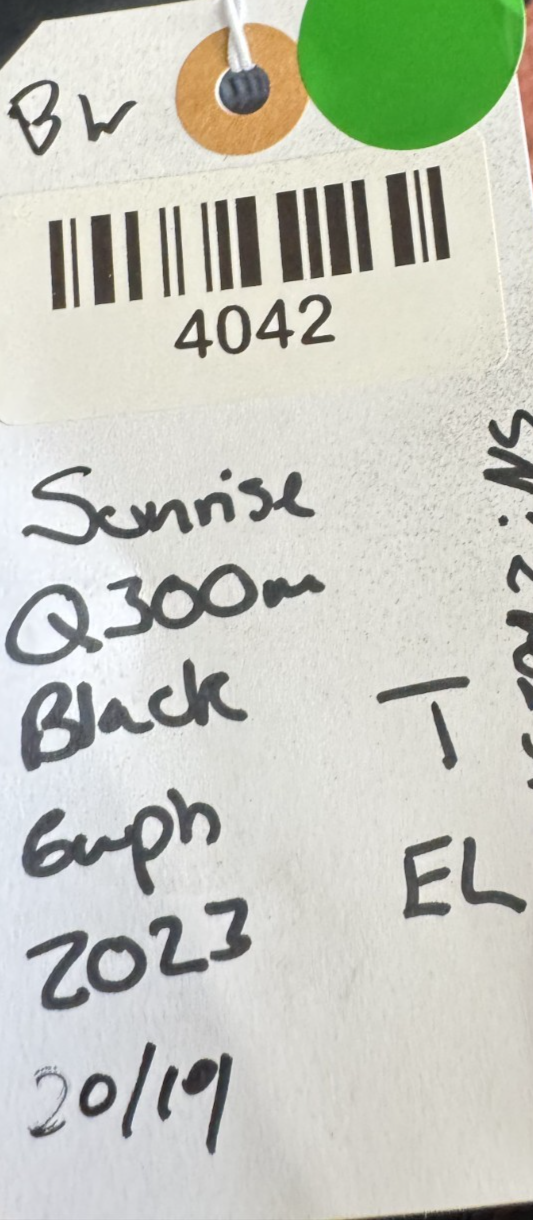 BW
4042
Sunrise
Q300m
Black
6mph
2023
20/19
T
EL